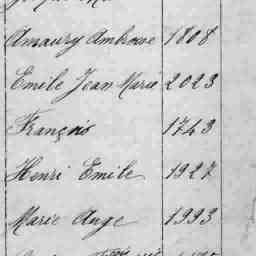 Amaury Ambroise 1808
Emile Jean Marie 2023
François 1743
Henri Emile 1927
Marie Ange 1993